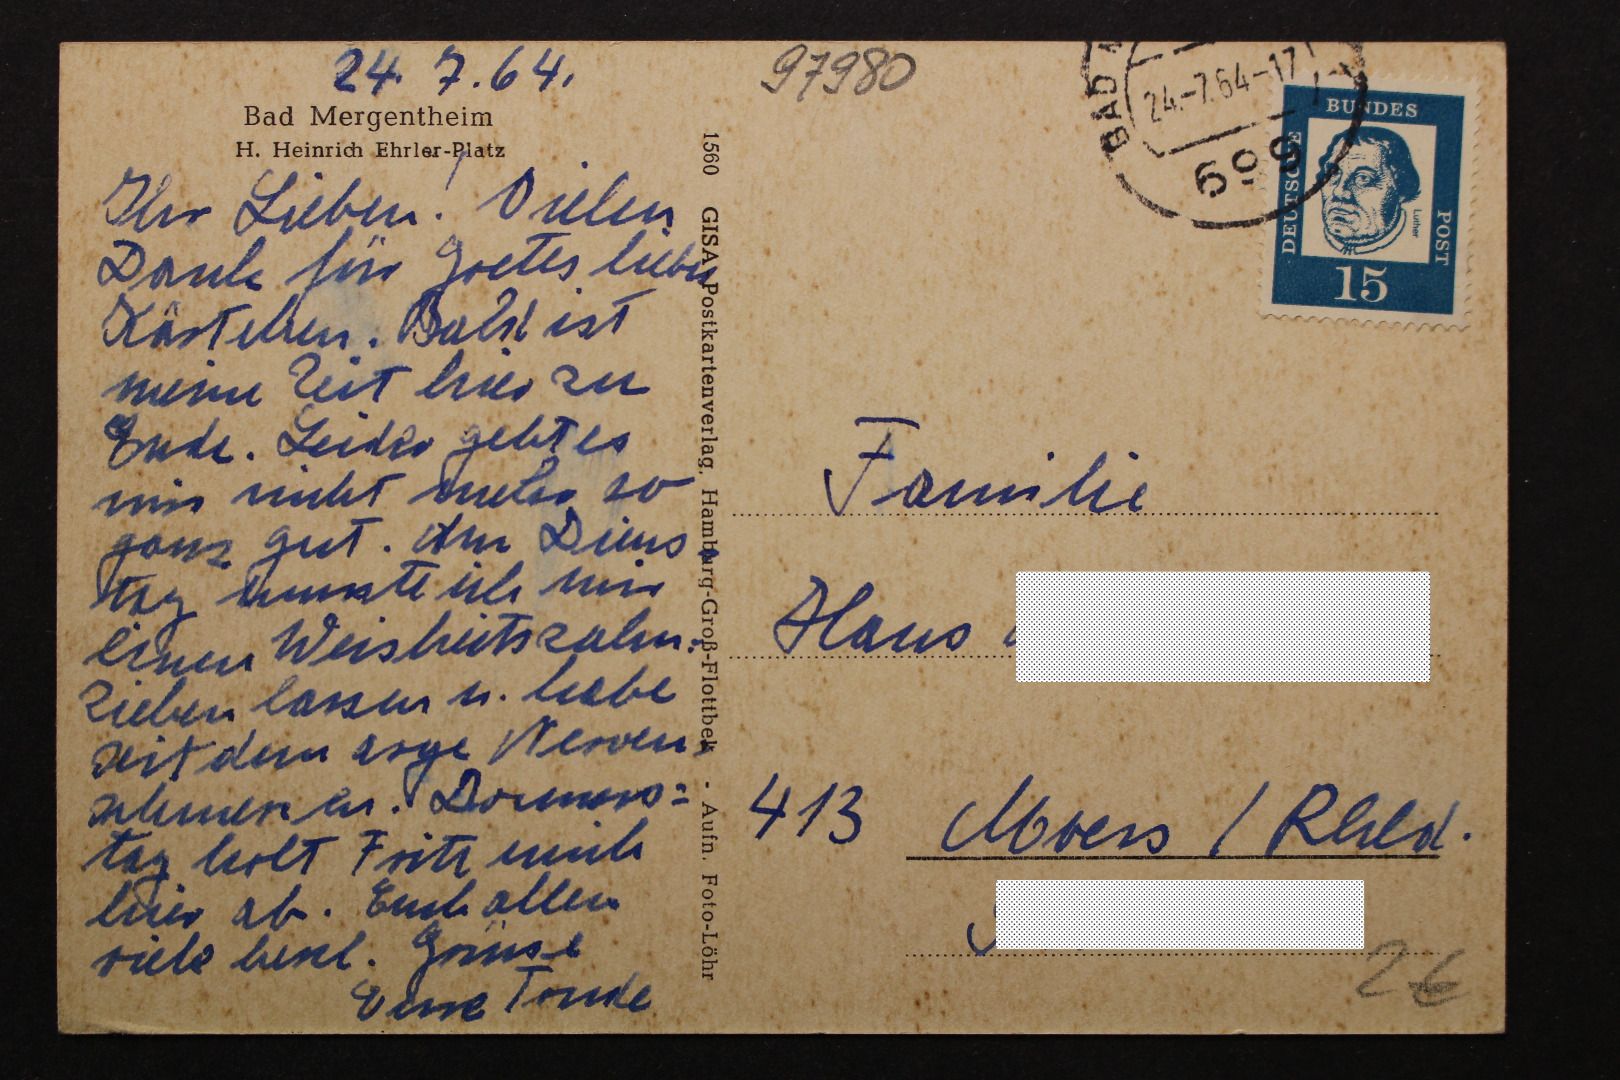 24. 7. 64.
Bad Mergentheim
H. Heinrich Ehrler-Platz
Ihr Lieben! Vielen
Dank für Gretes liebes
Kärtchen. Bald ist
meine Zeit hier zu
Ende. Leider geht es
mir nicht mehr so
ganz gut. Am Diens-
tag musste ich mir
einen Weisheitszahn
ziehen lassen u. habe
seit dem arge Nerven-
schmerzen. Donners=
tag holt Fritz mich
hier ab. Euch allen
viele herzl. Grüsse
Eure Trude
1560 GISA Postkartenverlag, Hamburg-Groß-Flottbek · Aufn. Foto-Löhr
97980
BAD
24.-7.64-17
699
DEUTSCHE
BUNDES
POST
Luther
15
Familie
Hans
413 Moers / Rhld.
26